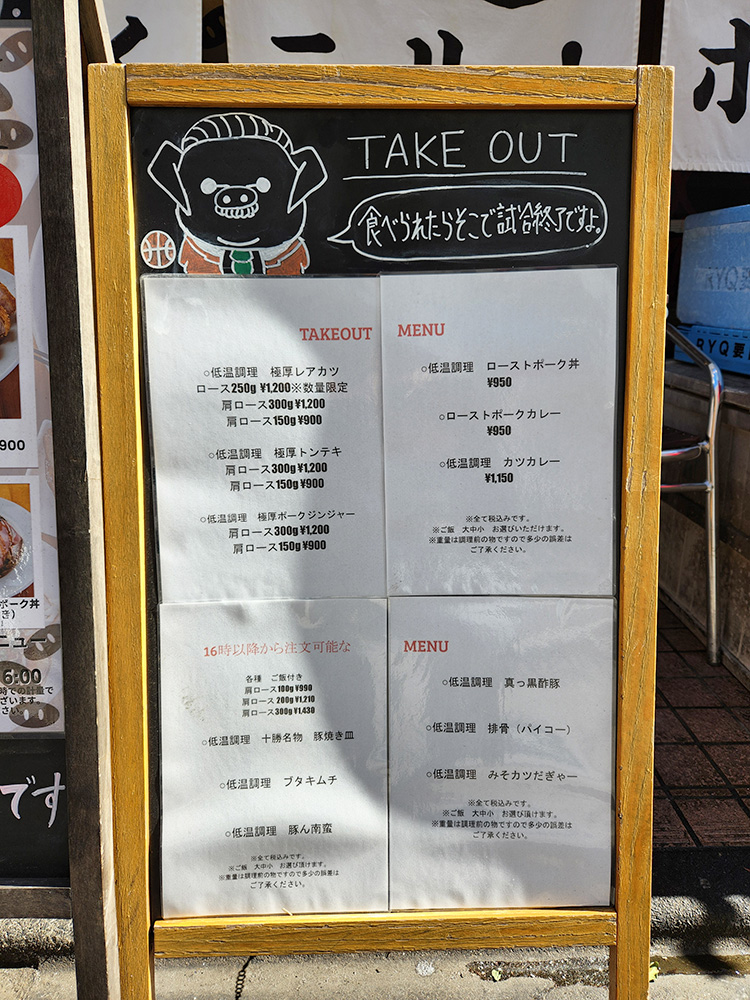 ポ
TAKE OUT
食べられたらそこで試合終了ですよ。
TAKEOUT MENU
○低温調理 極厚レアカツ
ロース250g ¥1,200※数量限定
肩ロース300g ¥1,200
肩ロース150g ¥900
○低温調理 極厚トンテキ
肩ロース300g ¥1,200
肩ロース150g ¥900
○低温調理 極厚ポークジンジャー
肩ロース300g ¥1,200
肩ロース150g ¥900
○低温調理 ローストポーク丼
¥950
○ローストポークカレー
¥950
○低温調理 カツカレー
¥1,150
※全て税込みです。
※ご飯 大中小 お選びいただけます。
※重量は調理前の物ですので多少の誤差は
ご了承ください。
16時以降から注文可能な MENU
各種 ご飯付き
肩ロース100g ¥990
肩ロース 200g ¥1,210
肩ロース300g ¥1,430
○低温調理 十勝名物 豚焼き皿
○低温調理 ブタキムチ
○低温調理 豚ん南蛮
※全て税込みです。
※ご飯 大中小 お選び頂けます。
※重量は調理前の物ですので多少の誤差は
ご了承ください。
○低温調理 真っ黒酢豚
○低温調理 排骨（パイコー）
○低温調理 みそカツだぎゃー
※全て税込みです。
※ご飯 大中小 お選び頂けます。
※重量は調理前の物ですので多少の誤差は
ご了承ください。
900
ポーク丼
き）
ニュー
6:00
時での計量で
ざいます。
さい。
です
RYQ要
RYQ要